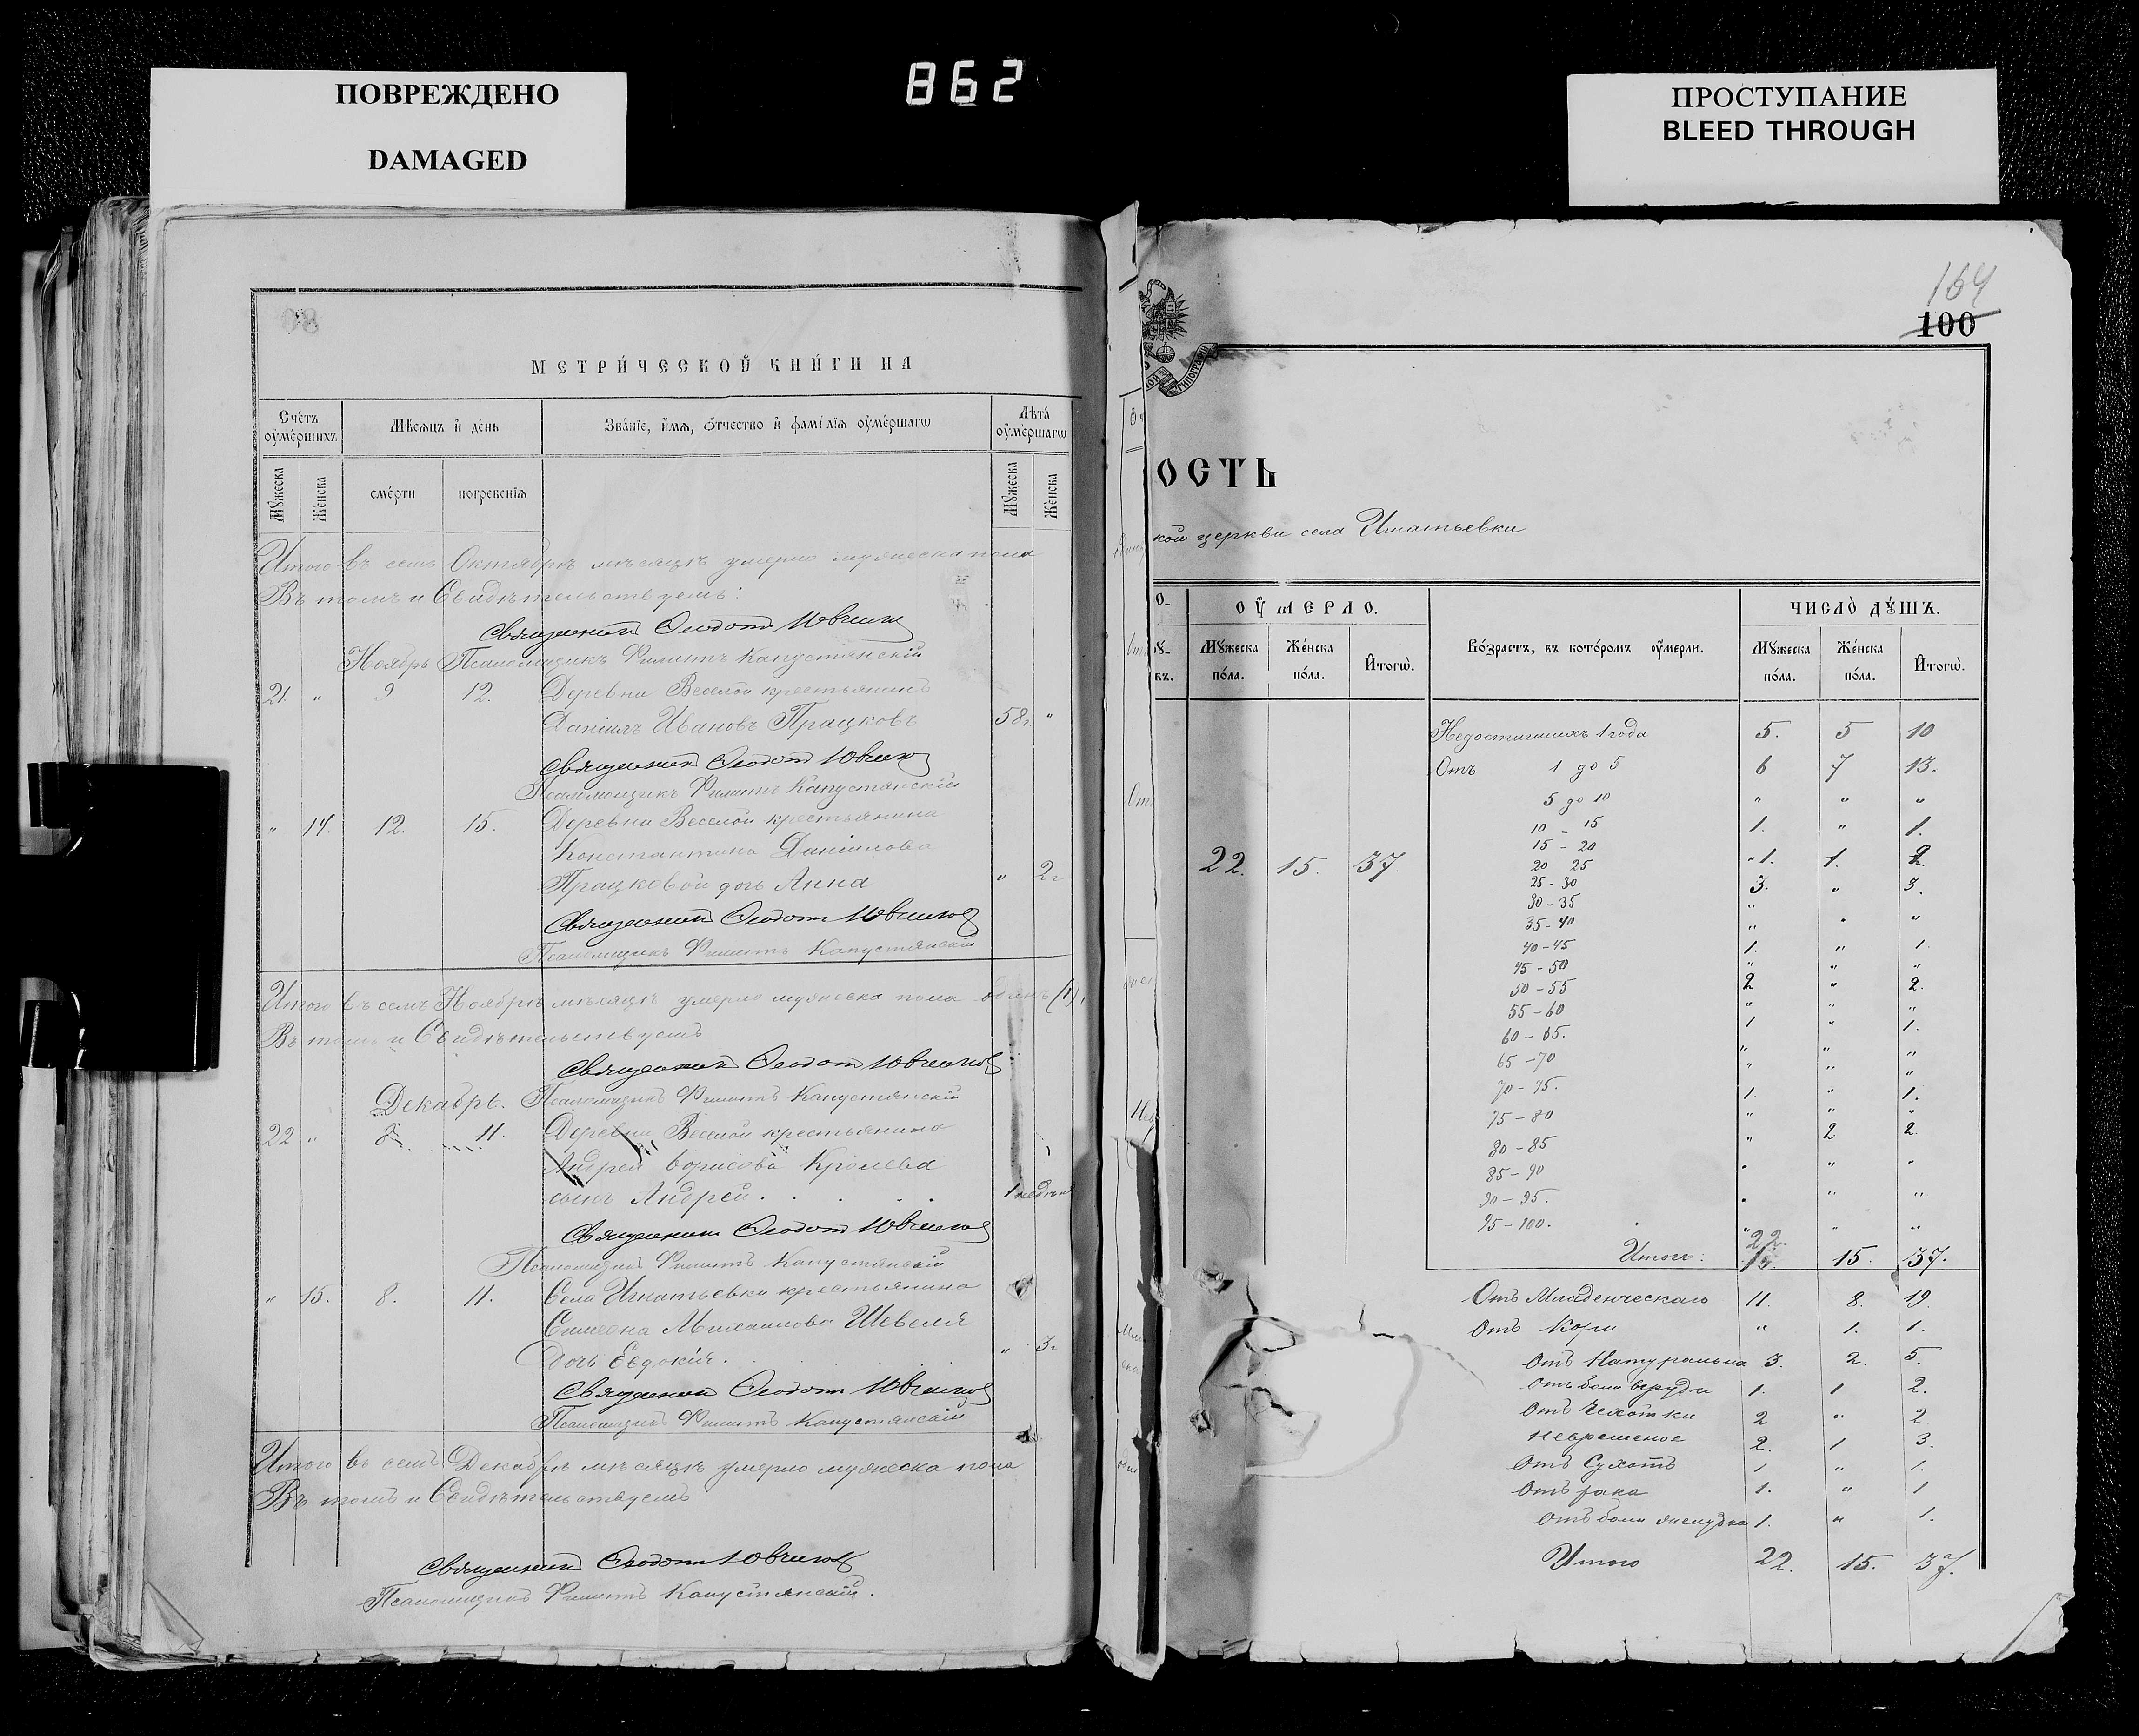 862
ПОВРЕЖДЕНО
DAMAGED
ПРОСТУПАНИЕ
BLEED THROUGH
МЕТРИ́ЧЕСКОЙ КНИ́ГИ НА
Сче́тъ оу҆ме́ршихъ
Мѣ́сѧцъ и҆ де́нь
Зва́нїе, и҆́мѧ, ѻ҆́тчество и҆ фамі́лїѧ оу҆ме́ршагѡ
Лѣта́ оу҆ме́ршагѡ
Мꙋ́жеска
Же́нска
сме́рти
погребе́нїѧ
Мꙋ́жеска
Же́нска
Итого въ семъ Октябрѣ мѣсяцѣ умерло мужеска пола
Въ томъ и Свидѣтельствуемъ:
Священникъ Ѳеодотъ
Ноябрь Псаломщикъ Филиппъ Капустянскій
21. " 9. 12. Деревни Веселой крестьянинъ
Даніилъ Ивановъ Працковъ 58г. "
Священникъ Ѳеодотъ
Псаломщикъ Филиппъ Капустянскій
" 14. 12. 15. Деревни Веселой крестьянина
Константина Даніилова
Працковой дочь Анна " 2г.
Священникъ Ѳеодотъ
Псаломщикъ Филиппъ Капустянскій
Итого въ семъ Ноябрѣ мѣсяцѣ умерло мужеска пола одинъ (1),
Въ томъ и Свидѣтельствуемъ
Священникъ Ѳеодотъ
Декабрь. Псаломщикъ Филиппъ Капустянскій
22 " 8. 11. Деревни Веселой крестьянина
Андрея Борисова Кролева
сынъ Андрей. 1 недѣли
Священникъ Ѳеодотъ
Псаломщикъ Филиппъ Капустянскій
" 15. 8. 11. Села Игнатьевки крестьянина
Симеона Михаилова Шевеля
Дочь Евдокія. " 3г.
Священникъ Ѳеодотъ
Псаломщикъ Филиппъ Капустянскій
Итого въ семъ Декабрѣ мѣсяцѣ умерло мужеска пола
Въ томъ и Свидѣтельствуемъ
Священникъ Ѳеодотъ
Псаломщикъ Филиппъ Капустянскій.
164
100
ОСТЬ
кой церкви села Игнатьевки
ОУ҆МЕРЛО.
Мꙋ́жеска по́ла.
Же́нска по́ла.
И҆тогѡ̀.
Во́зрастъ, въ кото́ромъ оу҆́мерли.
ЧИСЛО̀ ДꙊ́ШЪ.
Мꙋ́жеска по́ла.
Же́нска по́ла.
И҆тогѡ̀.
22. 15. 37.
Недостигшихъ 1 года 5. 5 10
Отъ 1 до 5 6 7 13.
5 до 10 " " "
10 - 15 1. " 1.
15 - 20
20 25 1. 1. 2.
25 - 30 3. " 3.
30 - 35 "
35 - 40 " " "
40 - 45 1. " 1.
45 - 50 " " "
50 - 55 2 " 2.
55 - 60 " " "
60 - 65. 1 " 1.
65 - 70 " " "
70 - 75. " " "
75 - 80 1. " 1.
80 - 85 " " "
85 - 90 " 2 2.
90 - 95. " " "
95 - 100. " " "
Итого: 22. 15. 37.
Отъ Младенческаго 11. 8. 19.
Отъ Кори " 1. 1.
Отъ Натуральна 3. 2. 5.
Отъ боли въ груди 1. 1 2.
Отъ Чехотки 2 " 2
Невременое 2. 1 3.
Отъ Сухотъ 1 " 1.
Отъ рака 1. " 1
Отъ боли желудка 1. " 1.
Итого 22. 15. 37.